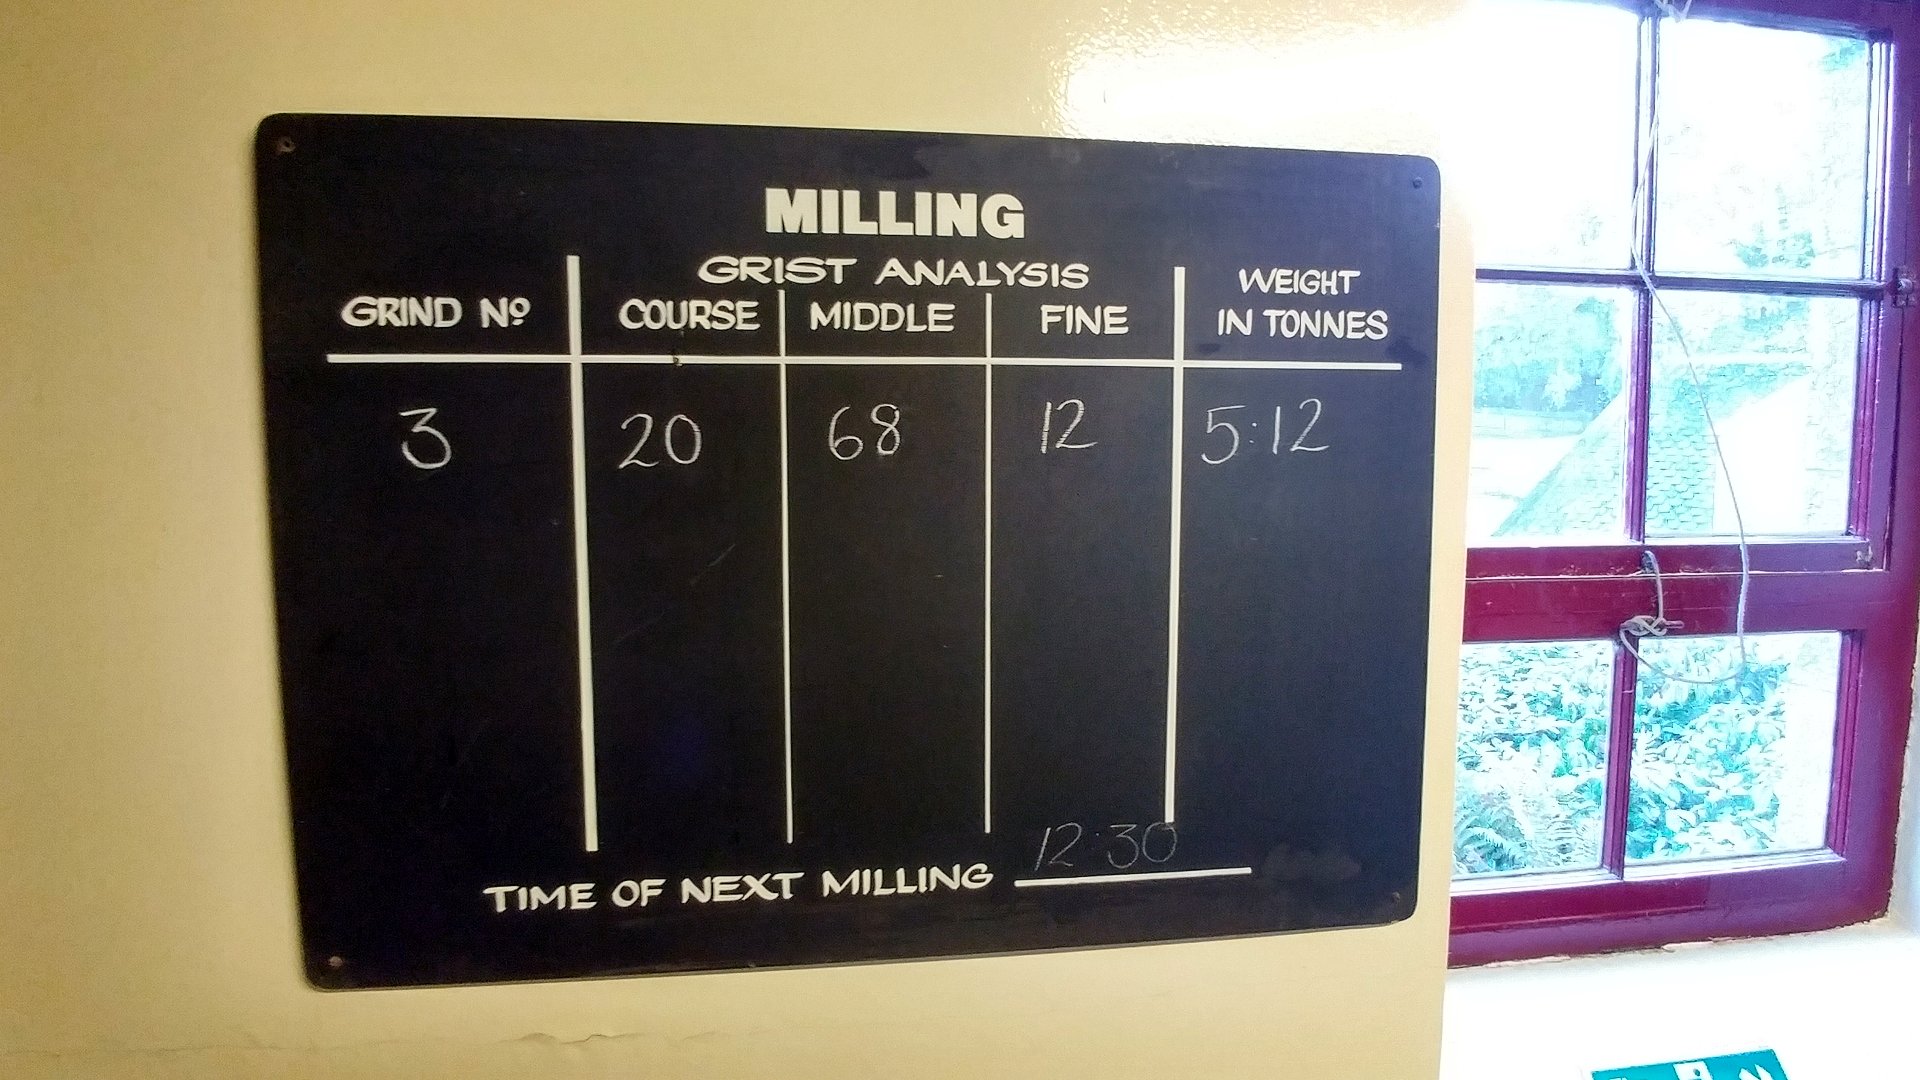 MILLING
GRIST ANALYSIS
GRIND Nº COURSE MIDDLE FINE WEIGHT IN TONNES
3 20 68 12 5:12
TIME OF NEXT MILLING 12:30